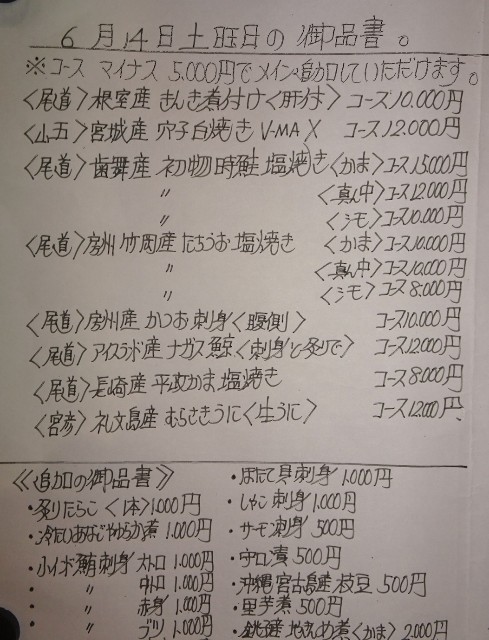 6月14日土曜日の御品書。
※コース マイナス 5.000円でメイン追加していただけます。
〈尾道〉根室産 きんき煮付け〈肝付〉 コース10.000円
〈山五〉宮城産 穴子白焼き V-MAX コース12.000円
〈尾道〉歯舞産 初物時鮭 塩焼き〈かま〉コース15.000円
〃 〈真ん中〉コース12.000円
〃 〈シモ〉コース10.000円
〈尾道〉房州 竹岡産 たちうお 塩焼き 〈かま〉コース10.000円
〃 〈真ん中〉コース10.000円
〃 〈シモ〉コース 8.000円
〈尾道〉房州産 かつお刺身〈腹側〉 コース10.000円
〈尾道〉アイスランド産 ナガス鯨〈刺身と炙りで〉 コース12.000円
〈尾道〉長崎産 平政かま 塩焼き コース 8.000円
〈宮彦〉礼文島産 むらさきうに〈生うに〉 コース12.000円
《追加の御品書》
・炙りたらこ〈1本〉1.000円
・冷たいあなごやわらか煮 1.000円
・小イボ鮪刺身 大トロ 1.000円
・〃 中トロ 1.000円
・〃 赤身 1.000円
・〃 ブツ 1.000円
・ほたて貝刺身 1.000円
・しゃこ 刺身 1.000円
・サーモン刺身 500円
・サロ漬 500円
・沖縄 宮古島産 枝豆 500円
・里芋煮 500円
・銚子産 地きんめ煮〈かま〉 2.000円